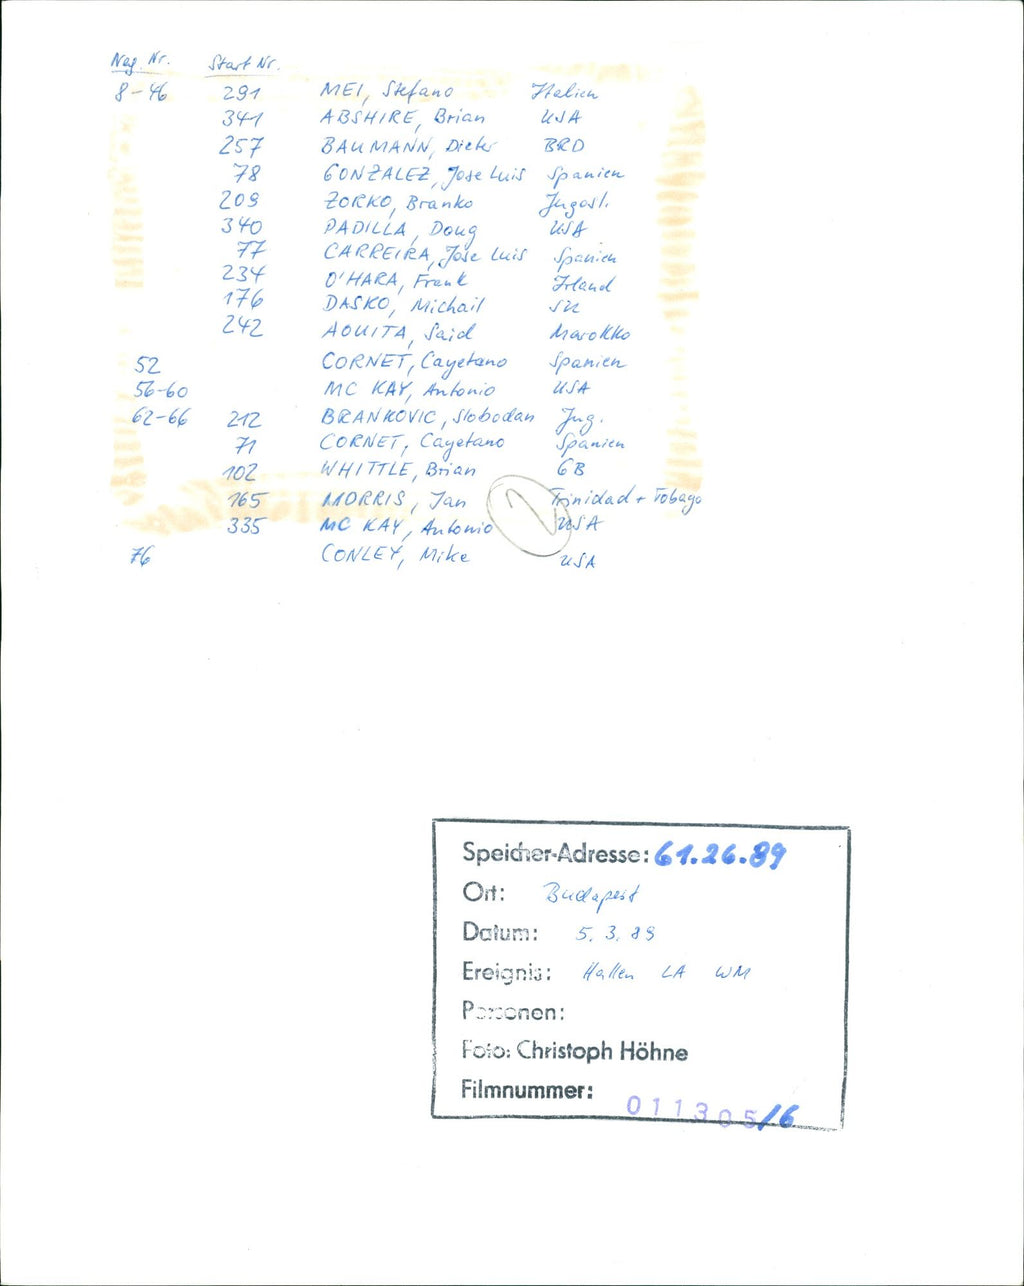 Neg. Nr. Start Nr.
8-46 291 MEI, Stefano Italien
341 ABSHIRE, Brian USA
257 BAUMANN, Dieter BRD
78 GONZALEZ, Jose Luis Spanien
209 ZORKO, Branko Jugosl.
340 PADILLA, Doug USA
77 CARREIRA, Jose Luis Spanien
234 O'HARA, Frank Irland
176 DASKO, Michail SU
242 AOUITA, Said Marokko
52 CORNET, Cayetano Spanien
56-60 MC KAY, Antonio USA
62-66 212 BRANKOVIC, Slobodan Jug.
71 CORNET, Cayetano Spanien
102 WHITTLE, Brian GB
165 MORRIS, Ian Trinidad + Tobago
335 MC KAY, Antonio USA
2
76 CONLEY, Mike USA
Speicher-Adresse: 61.26.89
Ort: Budapest
Datum: 5. 3. 89
Ereignis: Hallen LA WM
Personen:
Foto: Christoph Höhne
Filmnummer: 011305/6